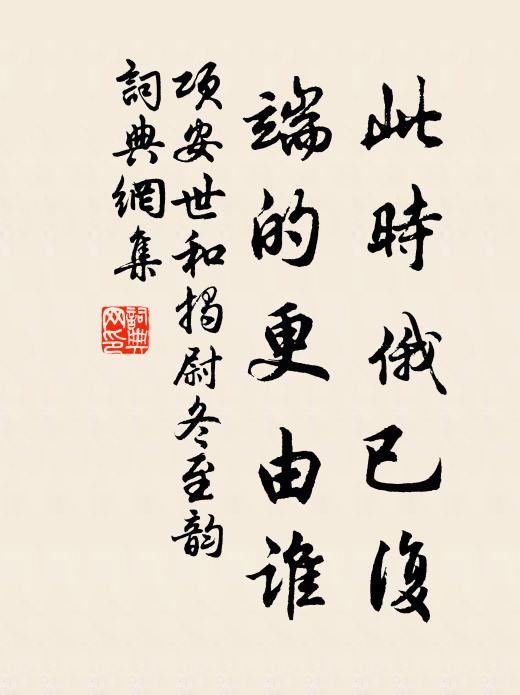 此時俄已復
端的更由誰
項安世和揭尉冬至韵
詞典網集
詞典
网印